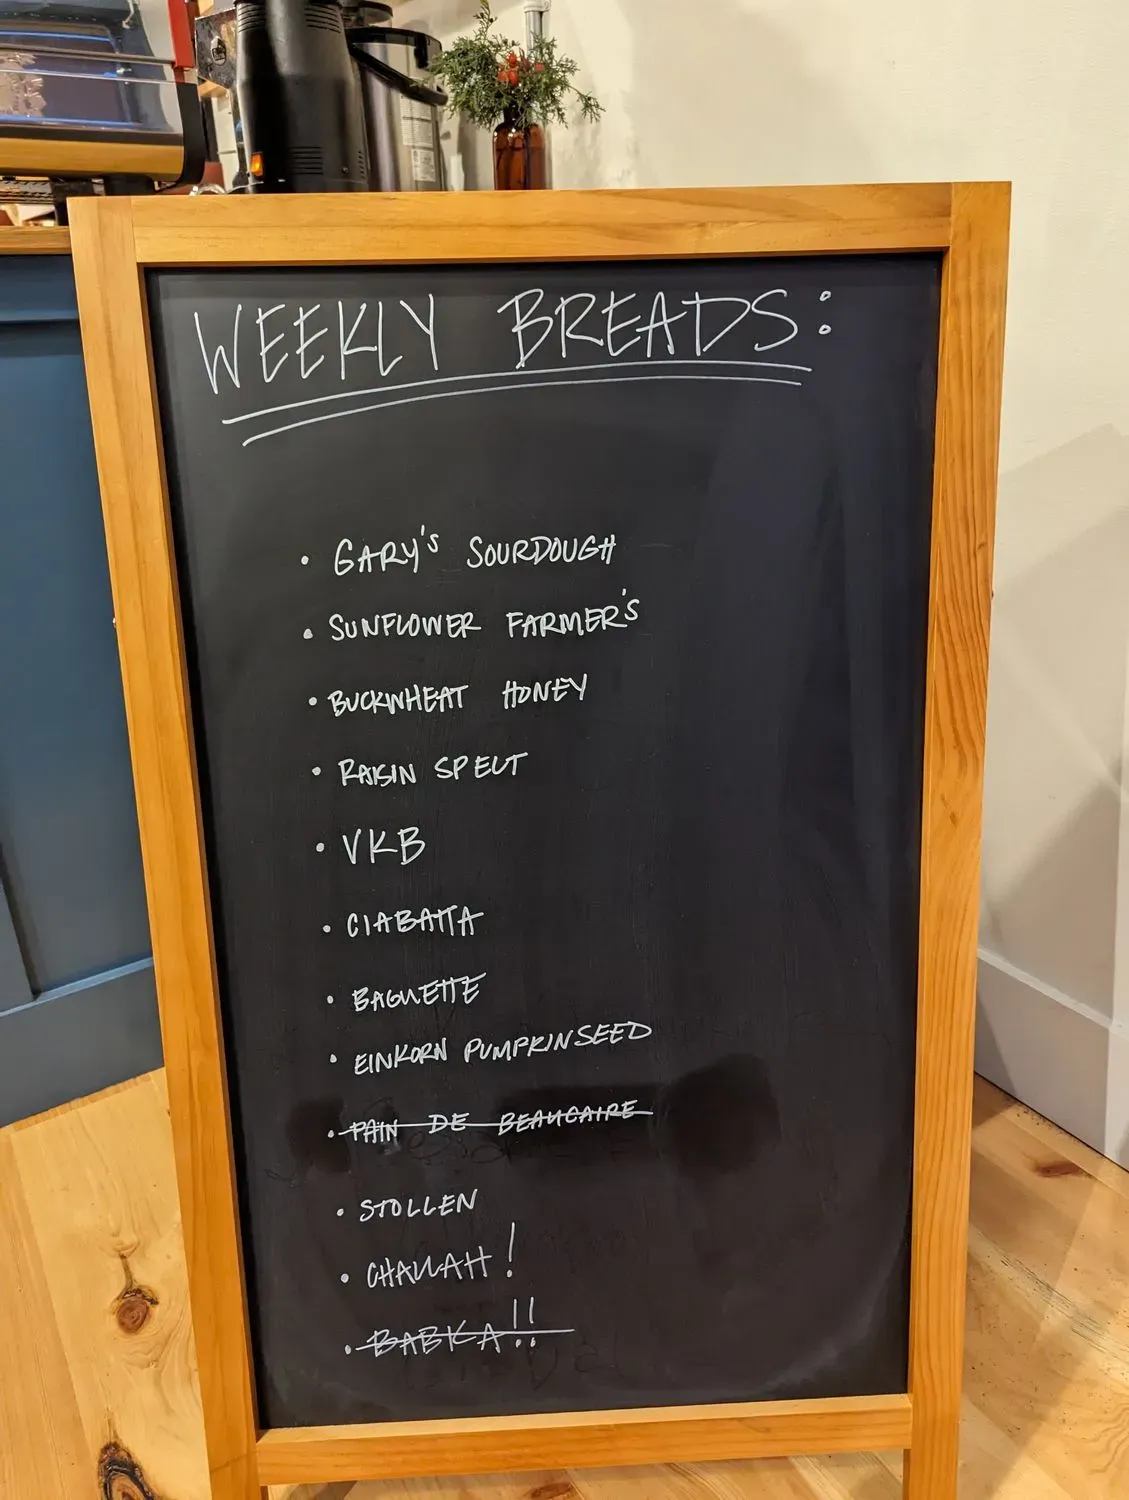 WEEKLY BREADS:
• GARY'S SOURDOUGH
• SUNFLOWER FARMER'S
• BUCKWHEAT HONEY
• RAISIN SPELT
• VKB
• CIABATTA
• BAGUETTE
• EINKORN PUMPKINSEED
• PAIN DE BEAUCAIRE
• STOLLEN
• CHALLAH!
• BABKA!!